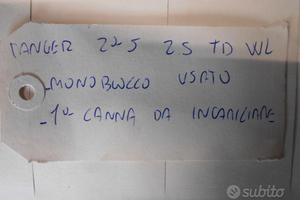 RANGER 2.5 TD WL
-MONOBLOCCO USATO
-1° CANNA DA INCAMICIARE
subito